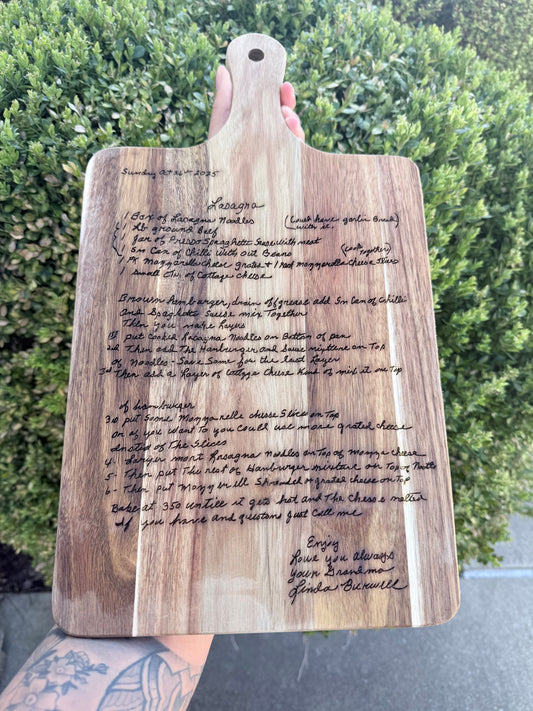 Sunday Oct 26th 2025
Lasagna
1 Box of Lasagna Noodles (Could have garlic Bread
1 Lb ground Beef with it.)
1 Jar of Presso Spaghetti Sause With meat
1 Sm Can of Chilli With out Beans (Cook Together)
1 PK Mozzarella cheese grated + 1 Pack mozzerella cheese Slices
1 Small Ctn. of Cottage cheese
Brown hamburger, drain off grease add Sm Can of Chilli
and Spaghetti Sause mix Together
Then you make Layers
1st put Cooked Lasagna Noodles on Bottom of pan
2nd Then add The Hamburger and Sause mixture on Top
of Noodles - Save Some for the last Layer
3rd Then add a Layer of Cottage Cheese Kind of mix it on Top
of hamburger
3rd put Some Mozzarelle cheese Slices on Top
or if you want To you Could use more grated cheese
instead of The Slices
4. Layer more Lasagna Noodles on Top of Mozza cheese
5- Then put The rest of Hamburger mixture on Top of Noodles
6- Then put Mozzerella Shredded or grated cheese on Top
Bake at 350 untill it gets hot and The Cheese melted
If you have and questons Just Call me
Enjoy
Love you always
your Grandma
Linda